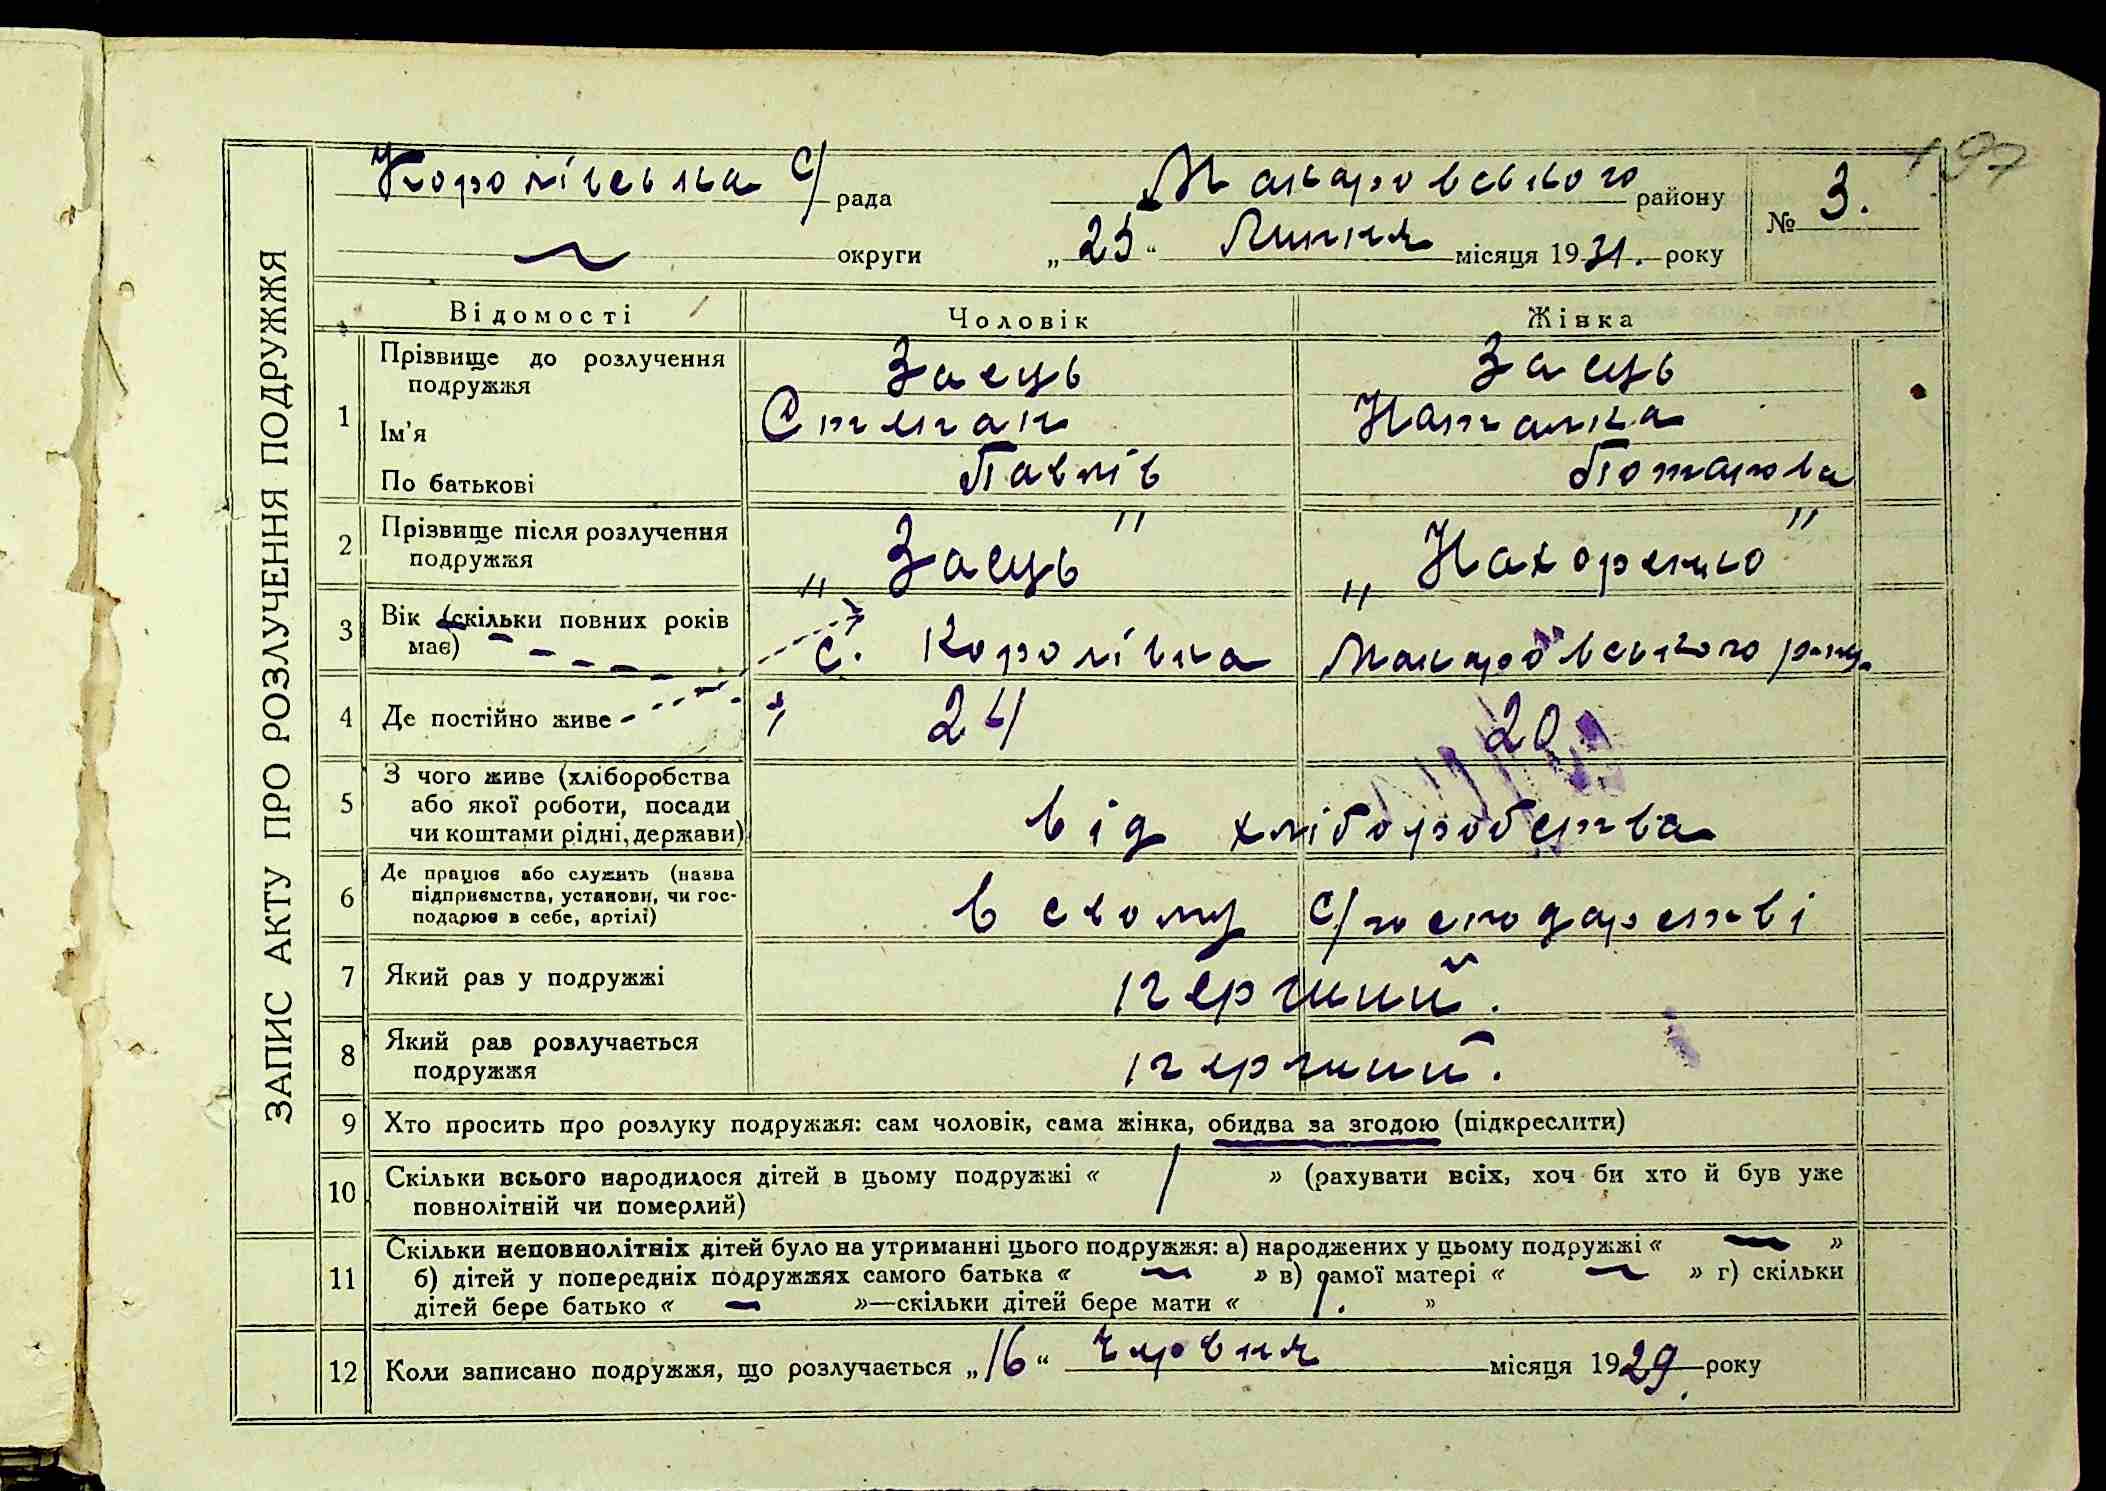 197
Королівська с/рада Макаровського району № 3.
~ округи „25“ Липня місяця 1931. року
ЗАПИС АКТУ ПРО РОЗЛУЧЕННЯ ПОДРУЖЖЯ
Відомості Чоловік Жінка
1 Прізвище до розлучення Заєць Заєць
подружжя
Ім'я Степан Наталка
По батькові Павлів Потапова
2 Прізвище після розлучення „Заєць" „Назоренко"
подружжя
3 Вік (скільки повних років с. Королівка Макаровського рну.
має)
4 Де постійно живе 24 20
5 З чого живе (хліборобства
або якої роботи, посади від хліборобства
чи коштами рідні, держави)
6 Де працює або служить (назва
підприємства, установи, чи гос- в свому с/господарстві
подарює в себе, артілі)
7 Який раз у подружжі перший.
8 Який раз розлучається перший.
подружжя
9 Хто просить про розлуку подружжя: сам чоловік, сама жінка, обидва за згодою (підкреслити)
10 Скільки всього народилося дітей в цьому подружжі « 1 » (рахувати всіх, хоч би хто й був уже
повнолітній чи померлий)
11 Скільки неповнолітніх дітей було на утриманні цього подружжя: а) народжених у цьому подружжі « — »
б) дітей у попередніх подружжях самого батька « — » в) самої матері « — » г) скільки
дітей бере батько « — »—скільки дітей бере мати « 1. »
12 Коли записано подружжя, що розлучається „16“ червня місяця 1929. року